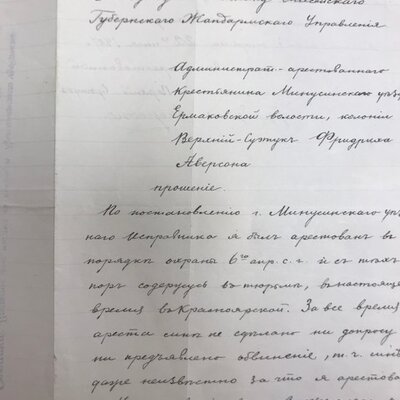 Губернскаго Жандармскаго Управленія
Администрат.-арестованнаго
Крестьянина Минусинскаго уѣз
Ермаковской волости, колоніи
Верхній-Сутукъ Фридриха
Аверсона
прошеніе.
По постановленію г. Минусинскаго уѣз
наго Исправника я былъ арестованъ въ
порядкѣ охраны 6го апр. с. г. и съ тѣхъ
поръ содержусь въ тюрьмѣ, въ настояще
время въ Красноярской. За все время
ареста мнѣ не сдѣлано ни допросу
ни предъявлено обвиненіе, т. ч. мнѣ
даже неизвѣстно за что я арестова